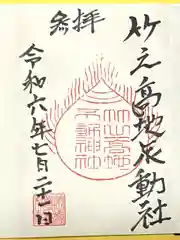 竹之高地不動社
参拝
竹之高地
不動神社
令和六年七月二十一日